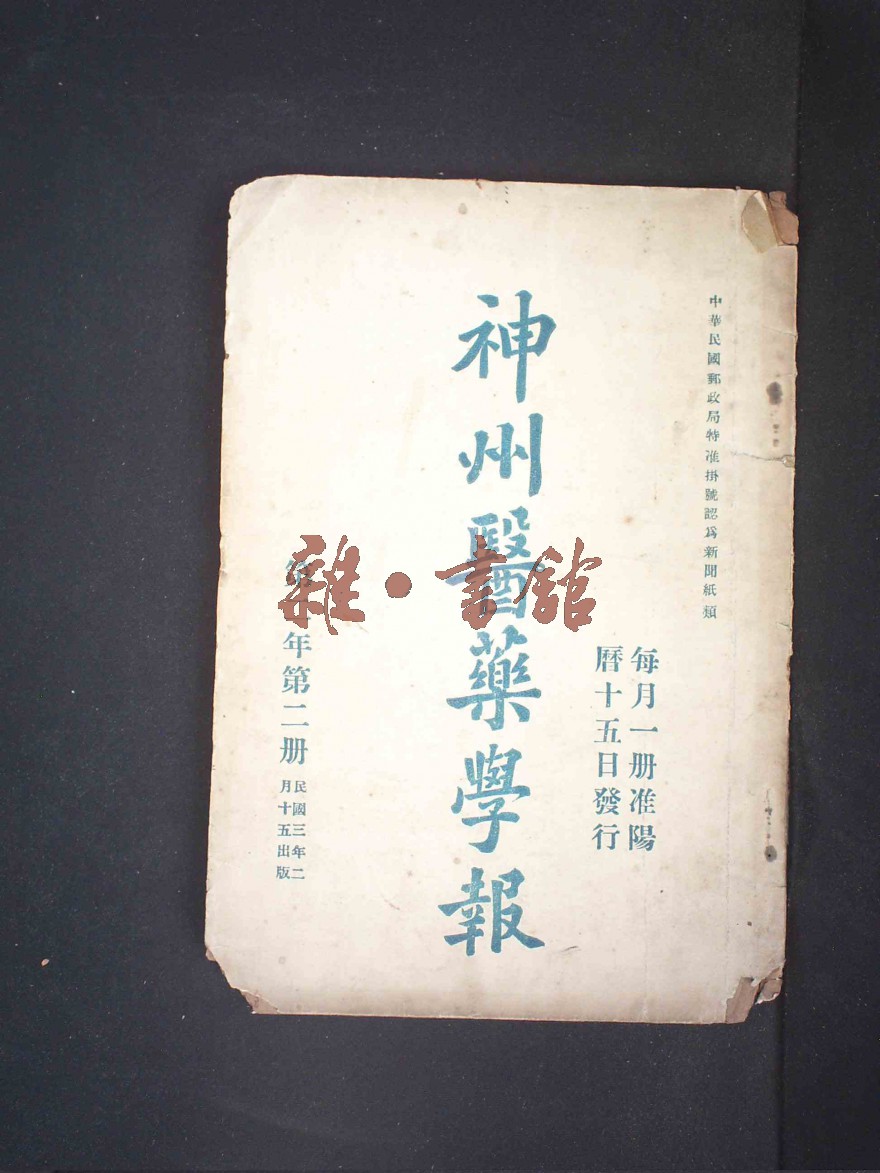 中華民國郵政局特准掛號認爲新聞紙類
每月一册准陽
曆十五日發行
神州醫藥學報
第二年第二册
民國三年二
月十五出版
雜·書館